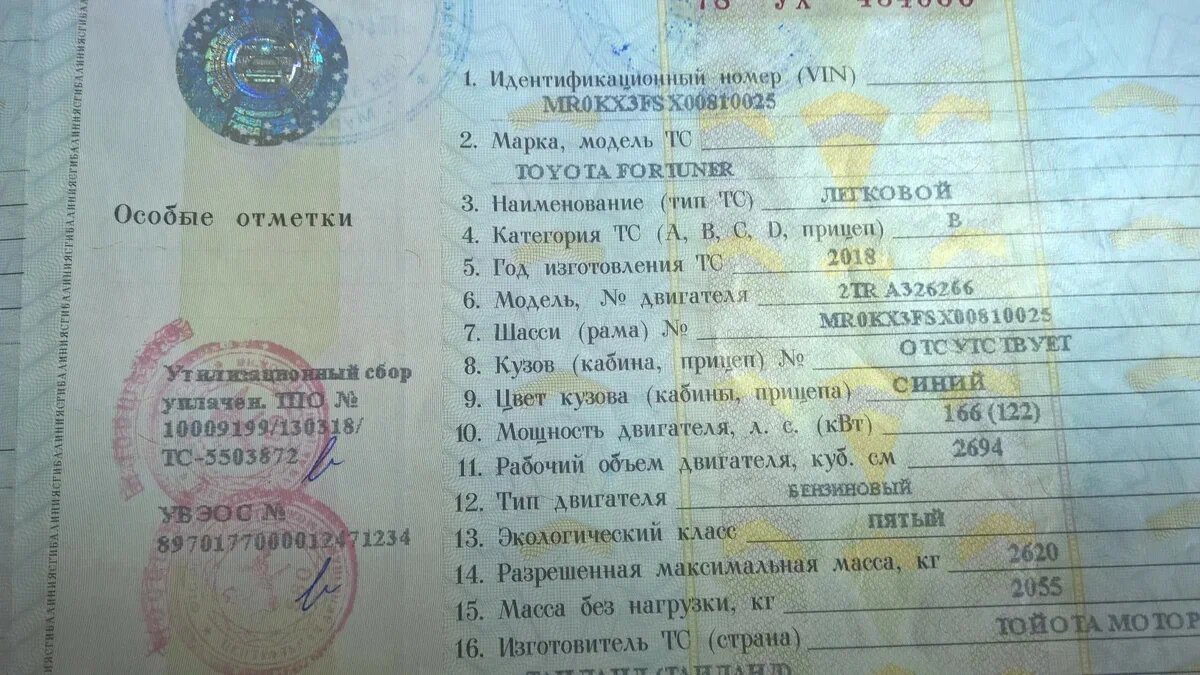 78 УХ
1. Идентификационный номер (VIN)
MR0KX3FSX00810025
2. Марка, модель ТС
TOYOTA FORTUNER
3. Наименование (тип ТС) ЛЕГКОВОЙ
4. Категория ТС (А, В, С, D, прицеп) В
5. Год изготовления ТС 2018
6. Модель, № двигателя 2TR A326266
7. Шасси (рама) № MR0KX3FSX00810025
8. Кузов (кабина, прицеп) № ОТСУТСТВУЕТ
9. Цвет кузова (кабины, прицепа) СИНИЙ
10. Мощность двигателя, л. с. (кВт) 166 (122)
11. Рабочий объем двигателя, куб. см 2694
12. Тип двигателя БЕНЗИНОВЫЙ
13. Экологический класс ПЯТЫЙ
14. Разрешенная максимальная масса, кг 2620
15. Масса без нагрузки, кг 2055
16. Изготовитель ТС (страна) ТОЙОТА МОТОР
ТАИЛАНД (ТАИЛАНД)
Особые отметки
Утилизационный сбор
уплачен. ТПО №
10009199/130318/
ТС-5503872
УВЭОС №
8970177000012471234